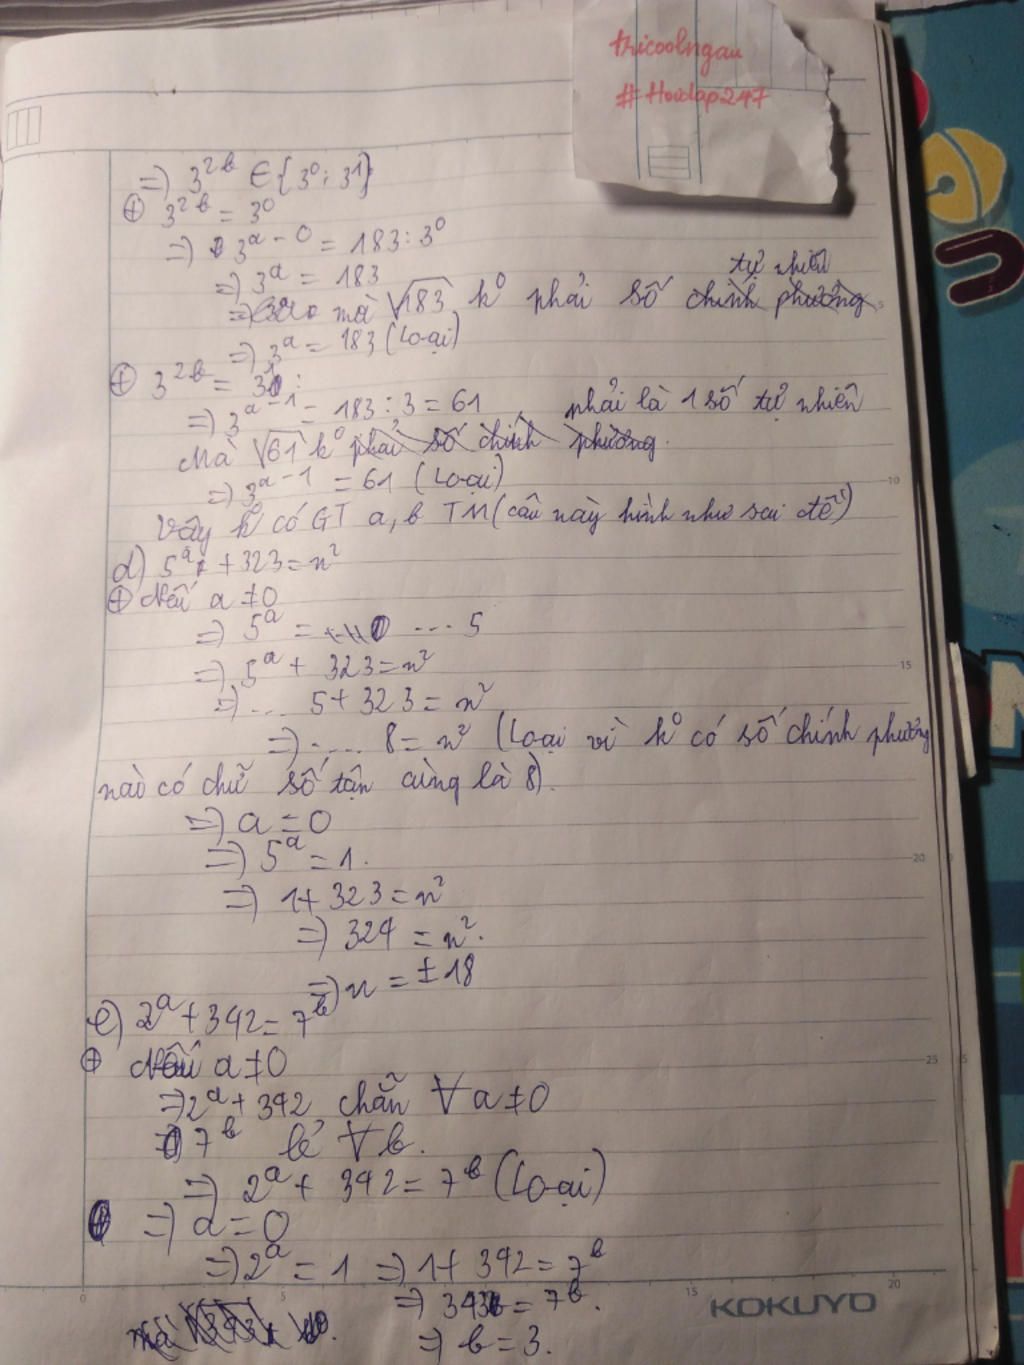 tricoolngau
#Hoidap247
=) 3^2b ∈ {3^0; 3^1}
⊕ 3^2b = 3^0
=) 3^a-0 = 183 : 3^0
=) 3^a = 183
tự nhiên
=) mà √183 k° phải số chính phương
=) 3^a = 183 (Loại)
⊕ 3^2b = 3^1 :
=) 3^a-1 = 183 : 3 = 61
phải là 1 số tự nhiên
Mà √61 k° phải số chính phương.
=) 3^a-1 = 61 (Loại)
Vậy k° có GT a, b TM (câu này hình như sai đề)
d) 5^a + 323 = n²
⊕ Nếu a ≠ 0
=) 5^a = ... 5
=) 5^a + 323 = n²
=) ... 5 + 323 = n²
=) .... 8 = n² (Loại vì k° có số chính phương
nào có chữ số tận cùng là 8).
=) a = 0
=) 5^a = 1.
=) 1 + 323 = n²
=) 324 = n².
=) n = ±18
e) 2^a + 342 = 7^b
⊕ Nếu a ≠ 0
=) 2^a + 342 chẵn ∀a ≠ 0
7^b lẻ ∀b.
=) 2^a + 342 = 7^b (Loại)
=) a = 0
=) 2^a = 1 =) 1 + 342 = 7^b
=) 343 = 7^b.
=) b = 3.
KOKUYO
5
10
15
20
25
0
5
15
20